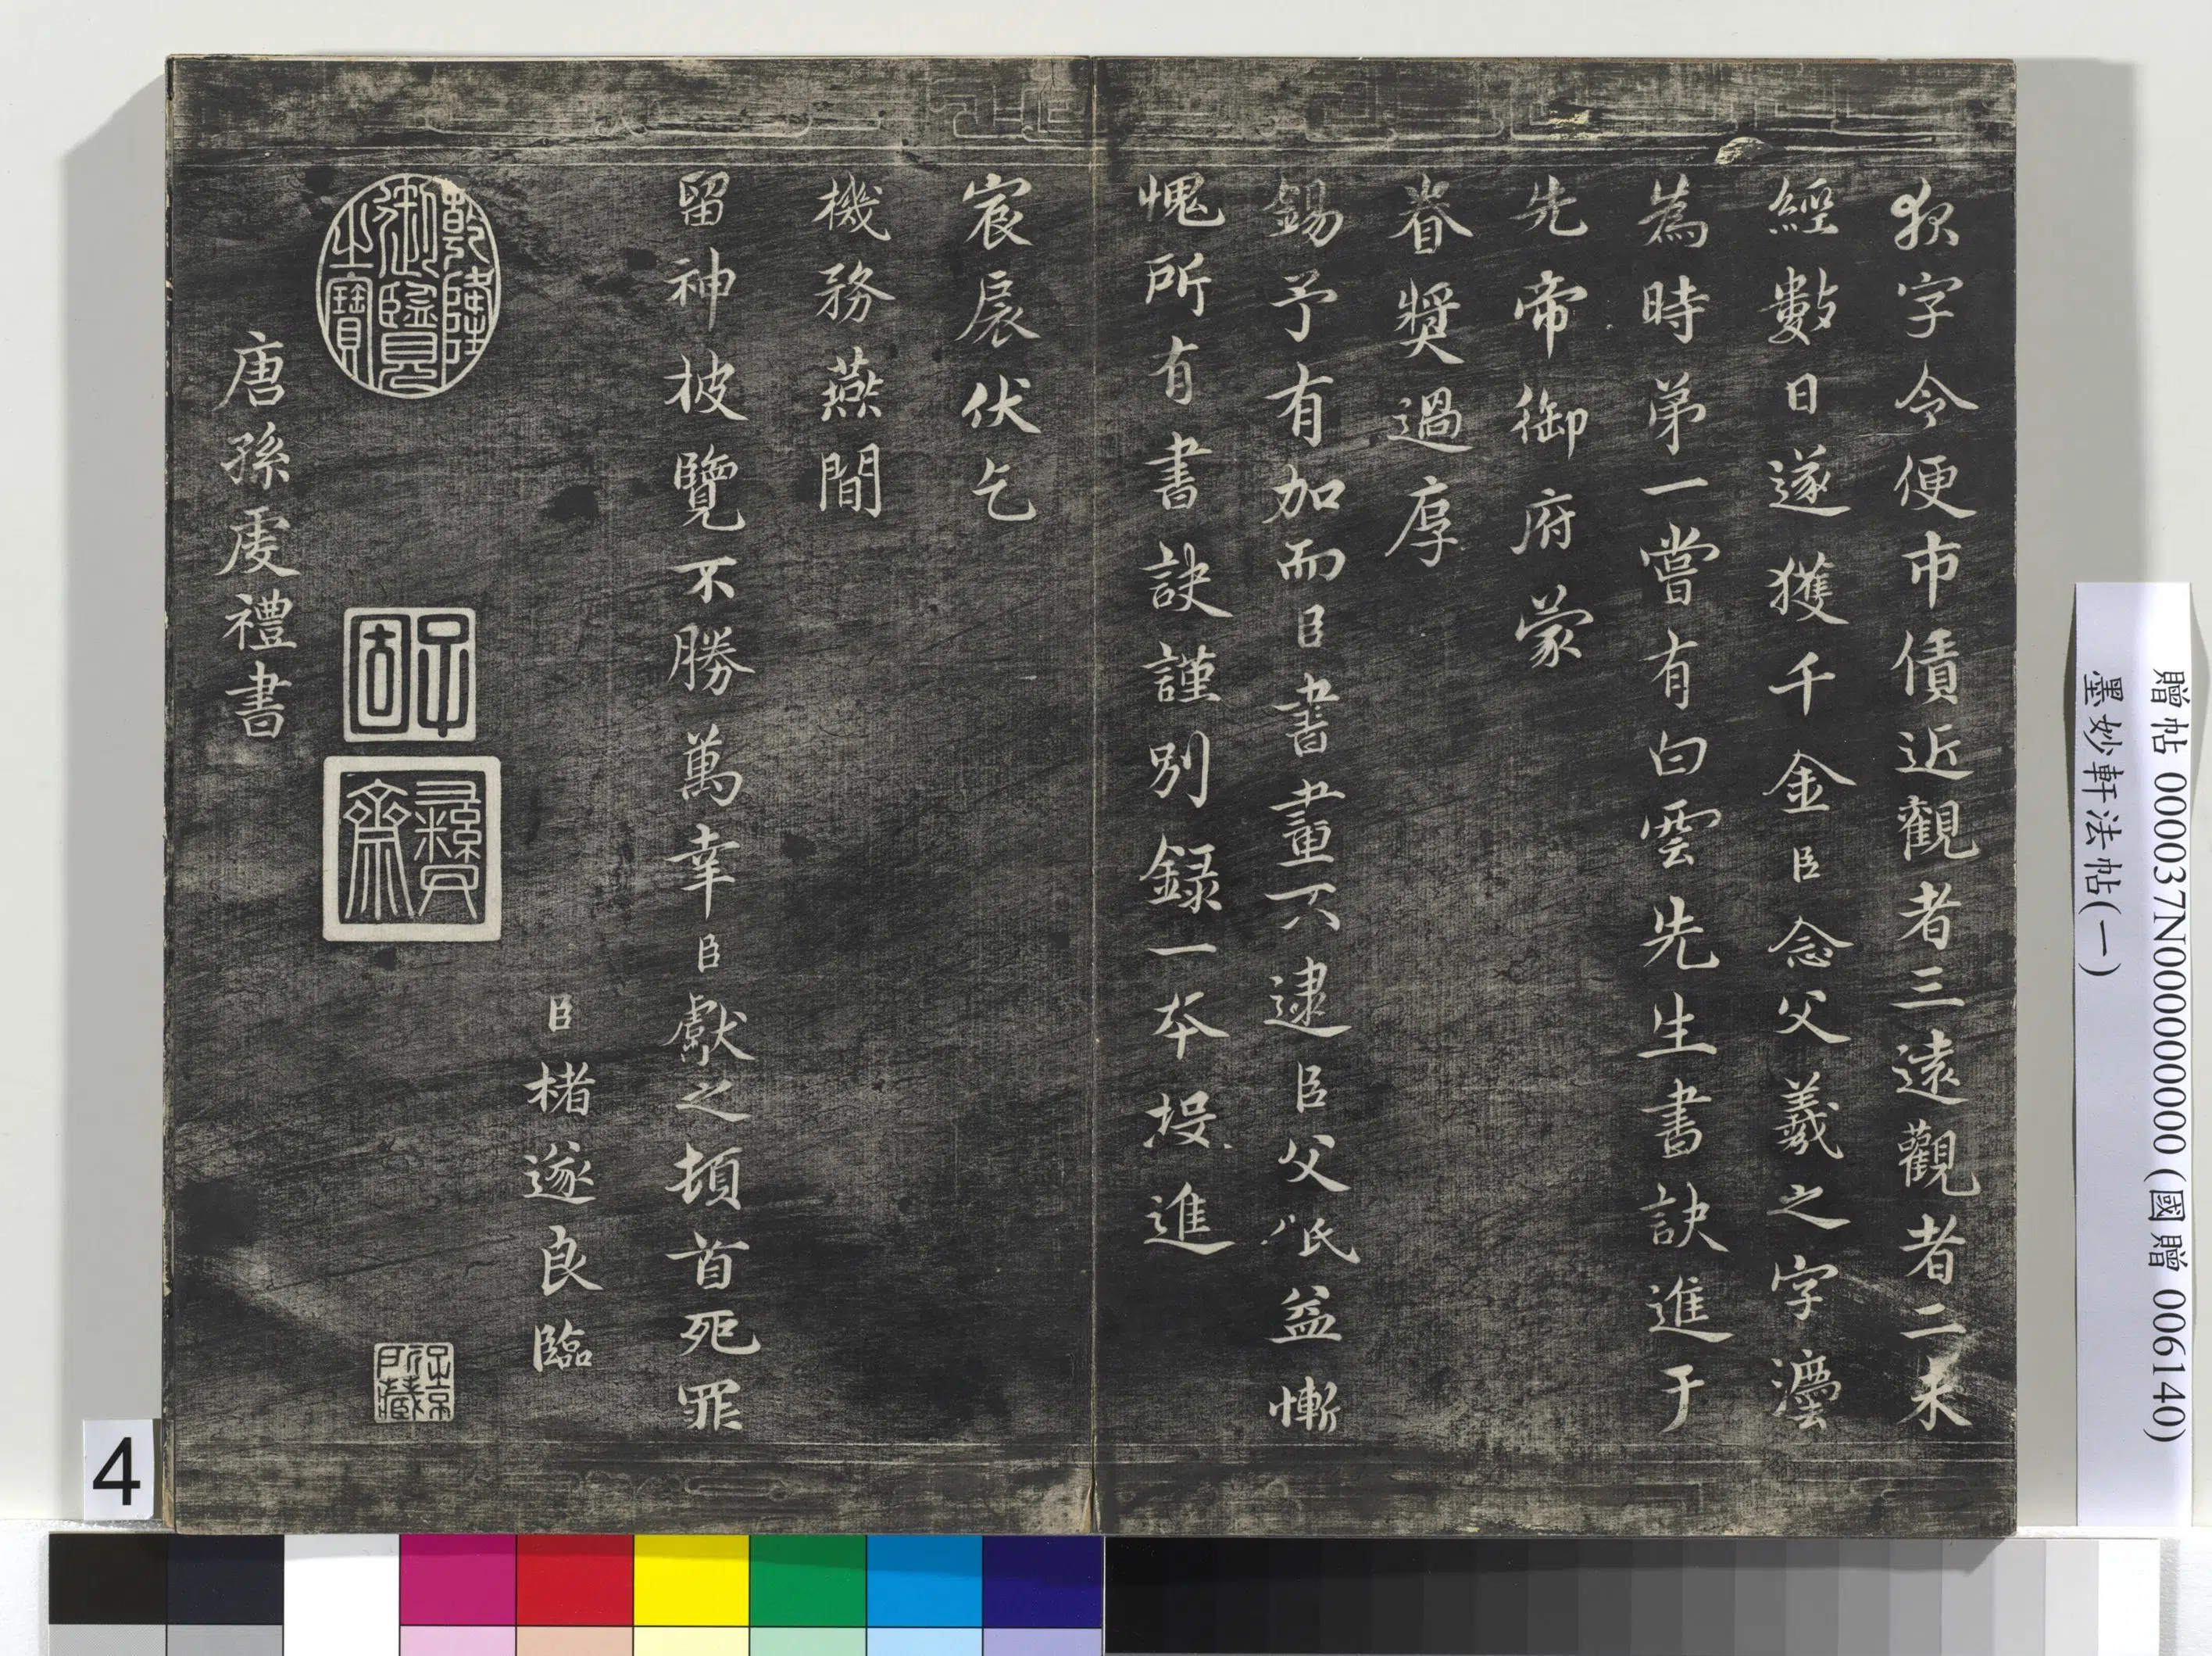 字令便市債近觀者三遠觀者二未
經數日遂獲千金臣念父羲之字灋
為時第一嘗有白雲先生書訣進于
先帝御府蒙
眷奬過厚
錫予有加而臣書畫不逮臣父派益慚
愧所有書訣謹別録一本投進
宸扆伏乞
機務燕閒
留神披覽不勝萬幸臣獻之頓首死罪
臣褚遂良臨
乾隆御覽之寶
子固
彝齋
子京所藏
唐孫虔禮書
贈帖 000037N000000000 (國贈 006140)
墨妙軒法帖(一)
4